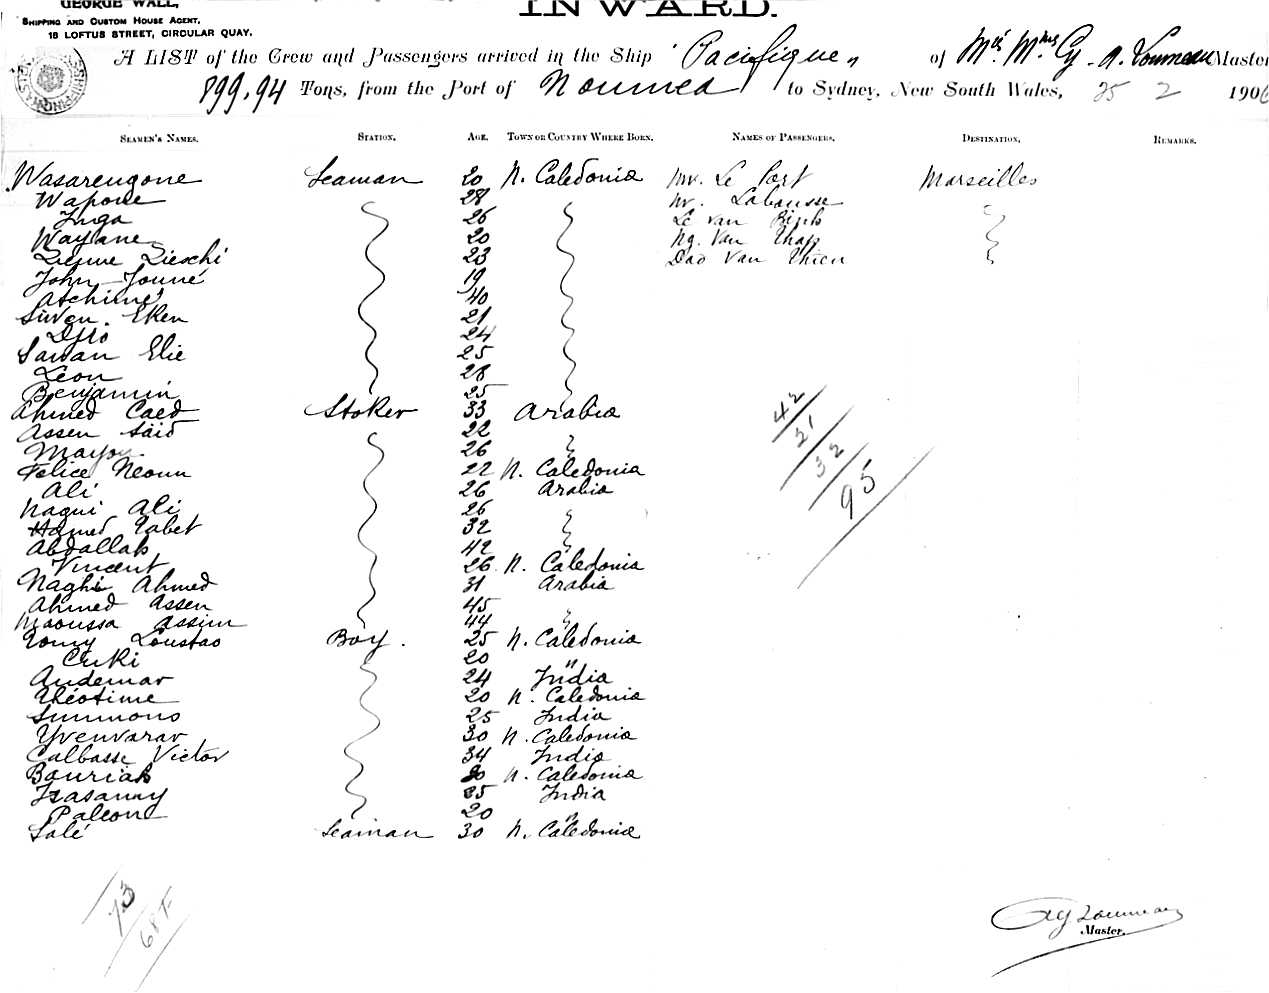 GEORGE WALL,
SHIPPING AND CUSTOM HOUSE AGENT,
18 LOFTUS STREET, CIRCULAR QUAY.
INWARD.
A LIST of the Crew and Passengers arrived in the Ship "Pacifique" of Mrs Mmes Cy. A. Loumeau Master
899.94 Tons, from the Port of Noumea to Sydney, New South Wales, 25 2 1906
SEAMEN'S NAMES. STATION. AGE. TOWN OR COUNTRY WHERE BORN. NAMES OF PASSENGERS. DESTINATION. REMARKS.
Wasarengone Seaman 20 N. Caledonia Mr. Le Port Marseilles
Wapone 28 Mr. Labousse
Inga 26 Le Van Binh
Wayane 20 Ng. Van Thap
23 Dao Van Thien
John Jouné 19
Atchimé 40
Siwen Eken 21
24
Sawan Elie 25
Léon 28
Benjamin 25
Ahmed Caed Stoker 33 Arabia
Assen Saïd 22
Mayou 26
Felice Neoun 22 N. Caledonia
Ali 26 Arabia
Nagui Ali 26
Hamed Tabet 32
Abdallah 42
Vincent 26 N. Caledonia
Naghi Ahmed 31 Arabia
Ahmed Assen 45
Maoussa Assim 44
Romy Loustao Boy. 25 N. Caledonia
Cuki 20 "
Andemar 24 India
Théotime 20 N. Caledonia
Simmons 25 India
Yvenvarar 30 N. Caledonia
Calbasse Victor 34 India
Bouriah 20 N. Caledonia
25 India
Paleone 20 "
Salé Seaman 30 N. Caledonia
42
21
32
95
73
68 F.
Ag Loumeau
Master.